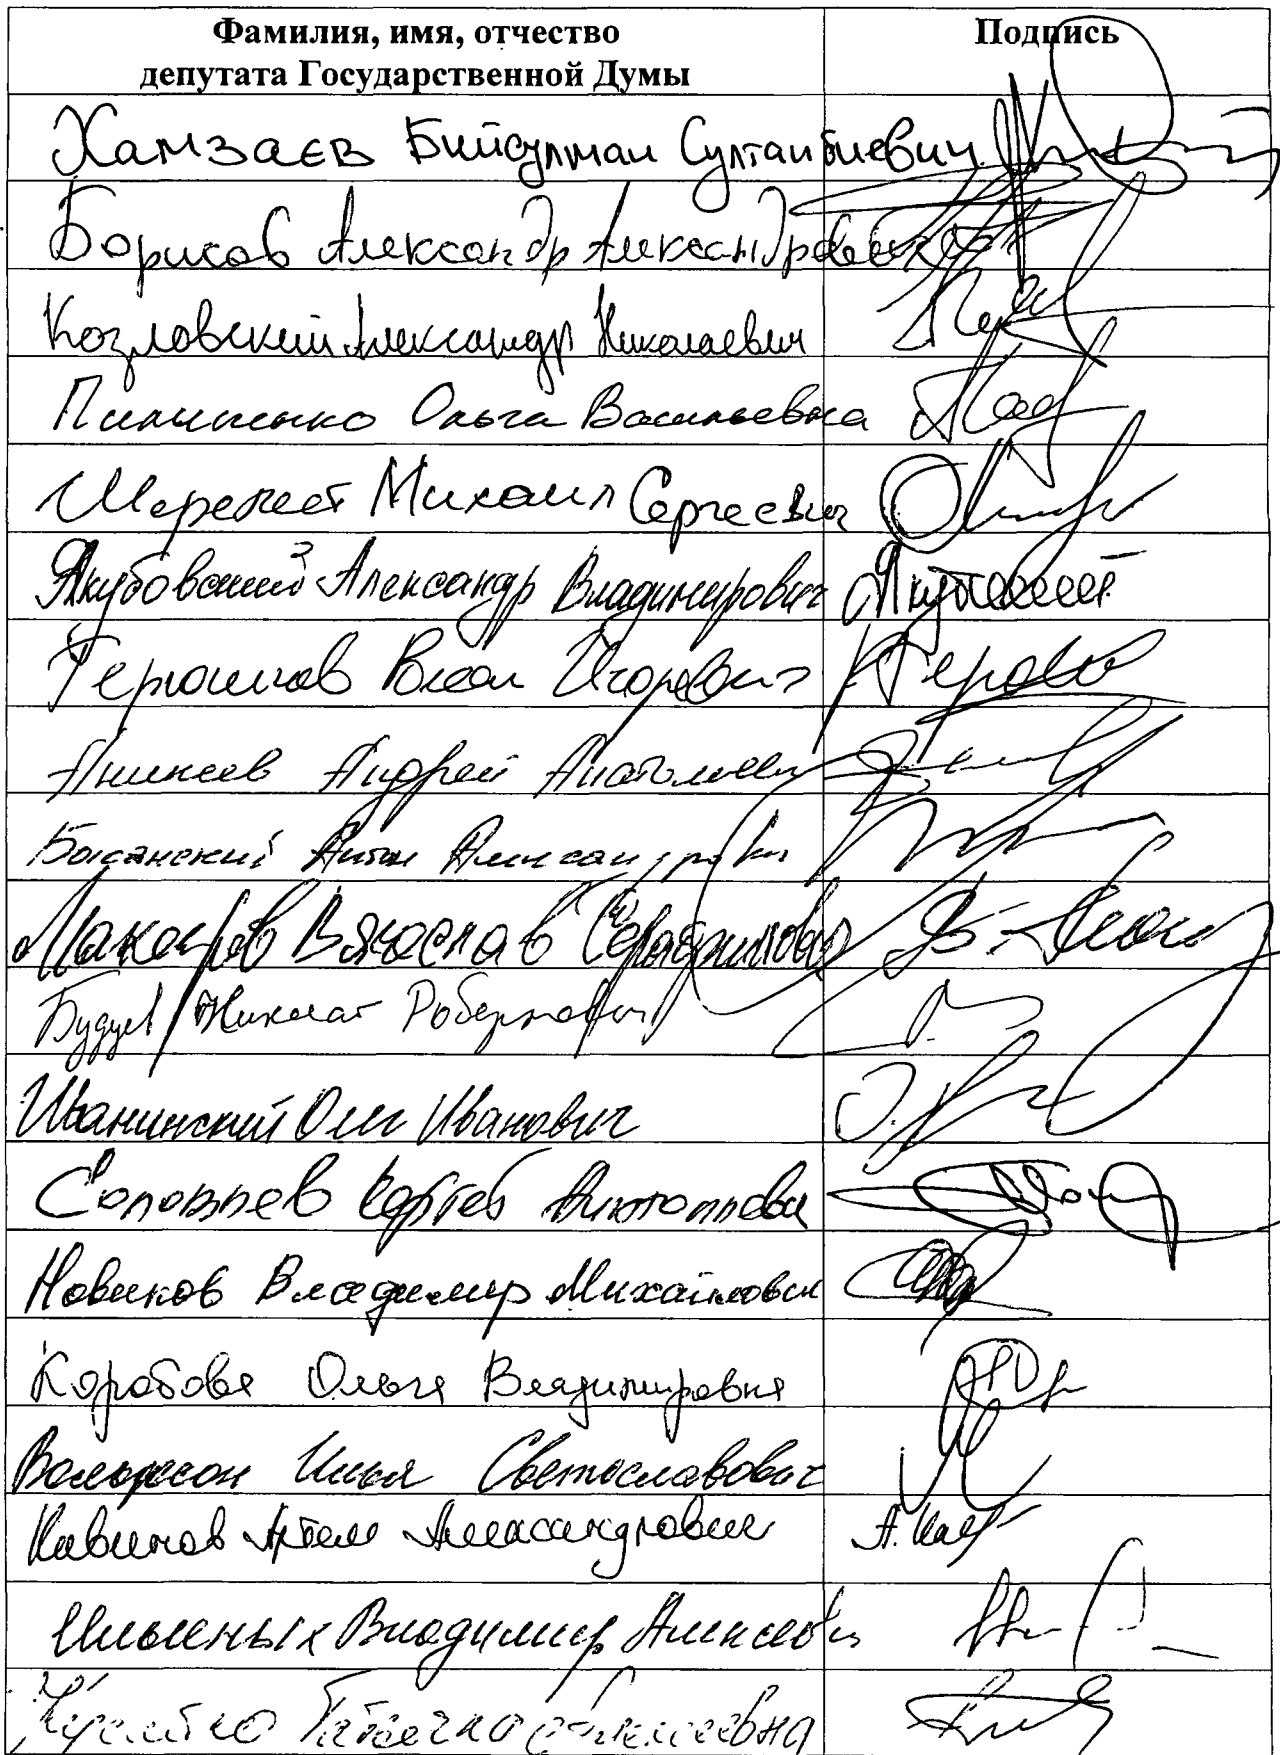 Фамилия, имя, отчество
депутата Государственной Думы
Подпись
Хамзаев Бийсултан Султанбиевич
Борисов Александр Александрович
Козловский Александр Николаевич
Пилипенко Ольга Васильевна
Шеремет Михаил Сергеевич
Якубовский Александр Владимирович Якубовский
Терюшков Роман Игоревич
Аникеев Андрей Анатольевич
Басанский Антон Александрович
Макаров Вячеслав Серафимович
Будуев Николай Робертович
Иванинский Олег Иванович
Соловьев Сергей Анатольевич
Новиков Владимир Михайлович
Коробова Ольга Владимировна
Вольфсон Илья Светославович
Кавинов Артем Александрович
Ильиных Владимир Алексеевич
Татьяна Алексеевна